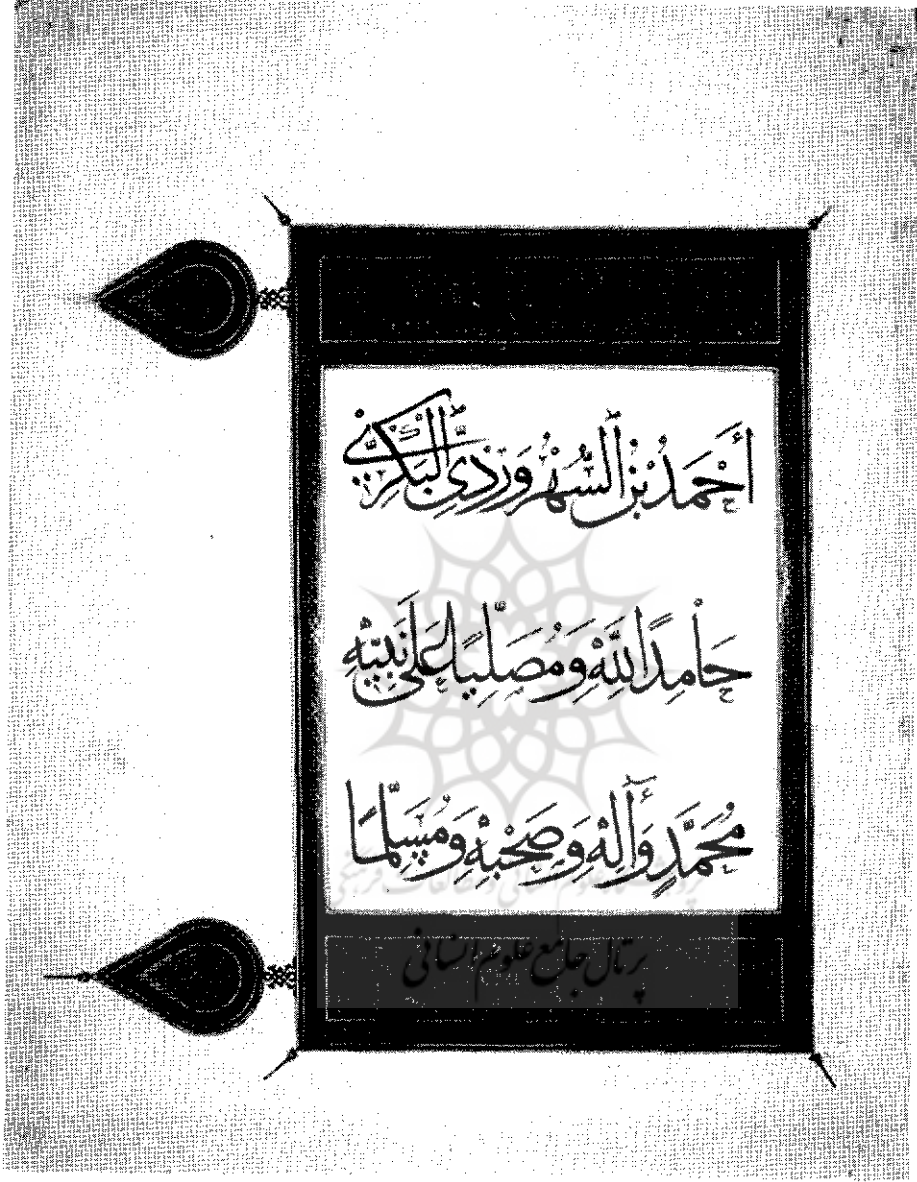 أَحْمَدُ بْنُ ٱلسُّهْرَوَرْدِيِّ ٱلْبَكْرِيّ
حَامِدًا لِلَّهِ وَمُصَلِّيًا عَلَى نَبِيِّهِ
مُحَمَّدٍ وَآلِهِ وَصَحْبِهِ وَمُسَلِّمًا
پرتال جامع علوم انسانی